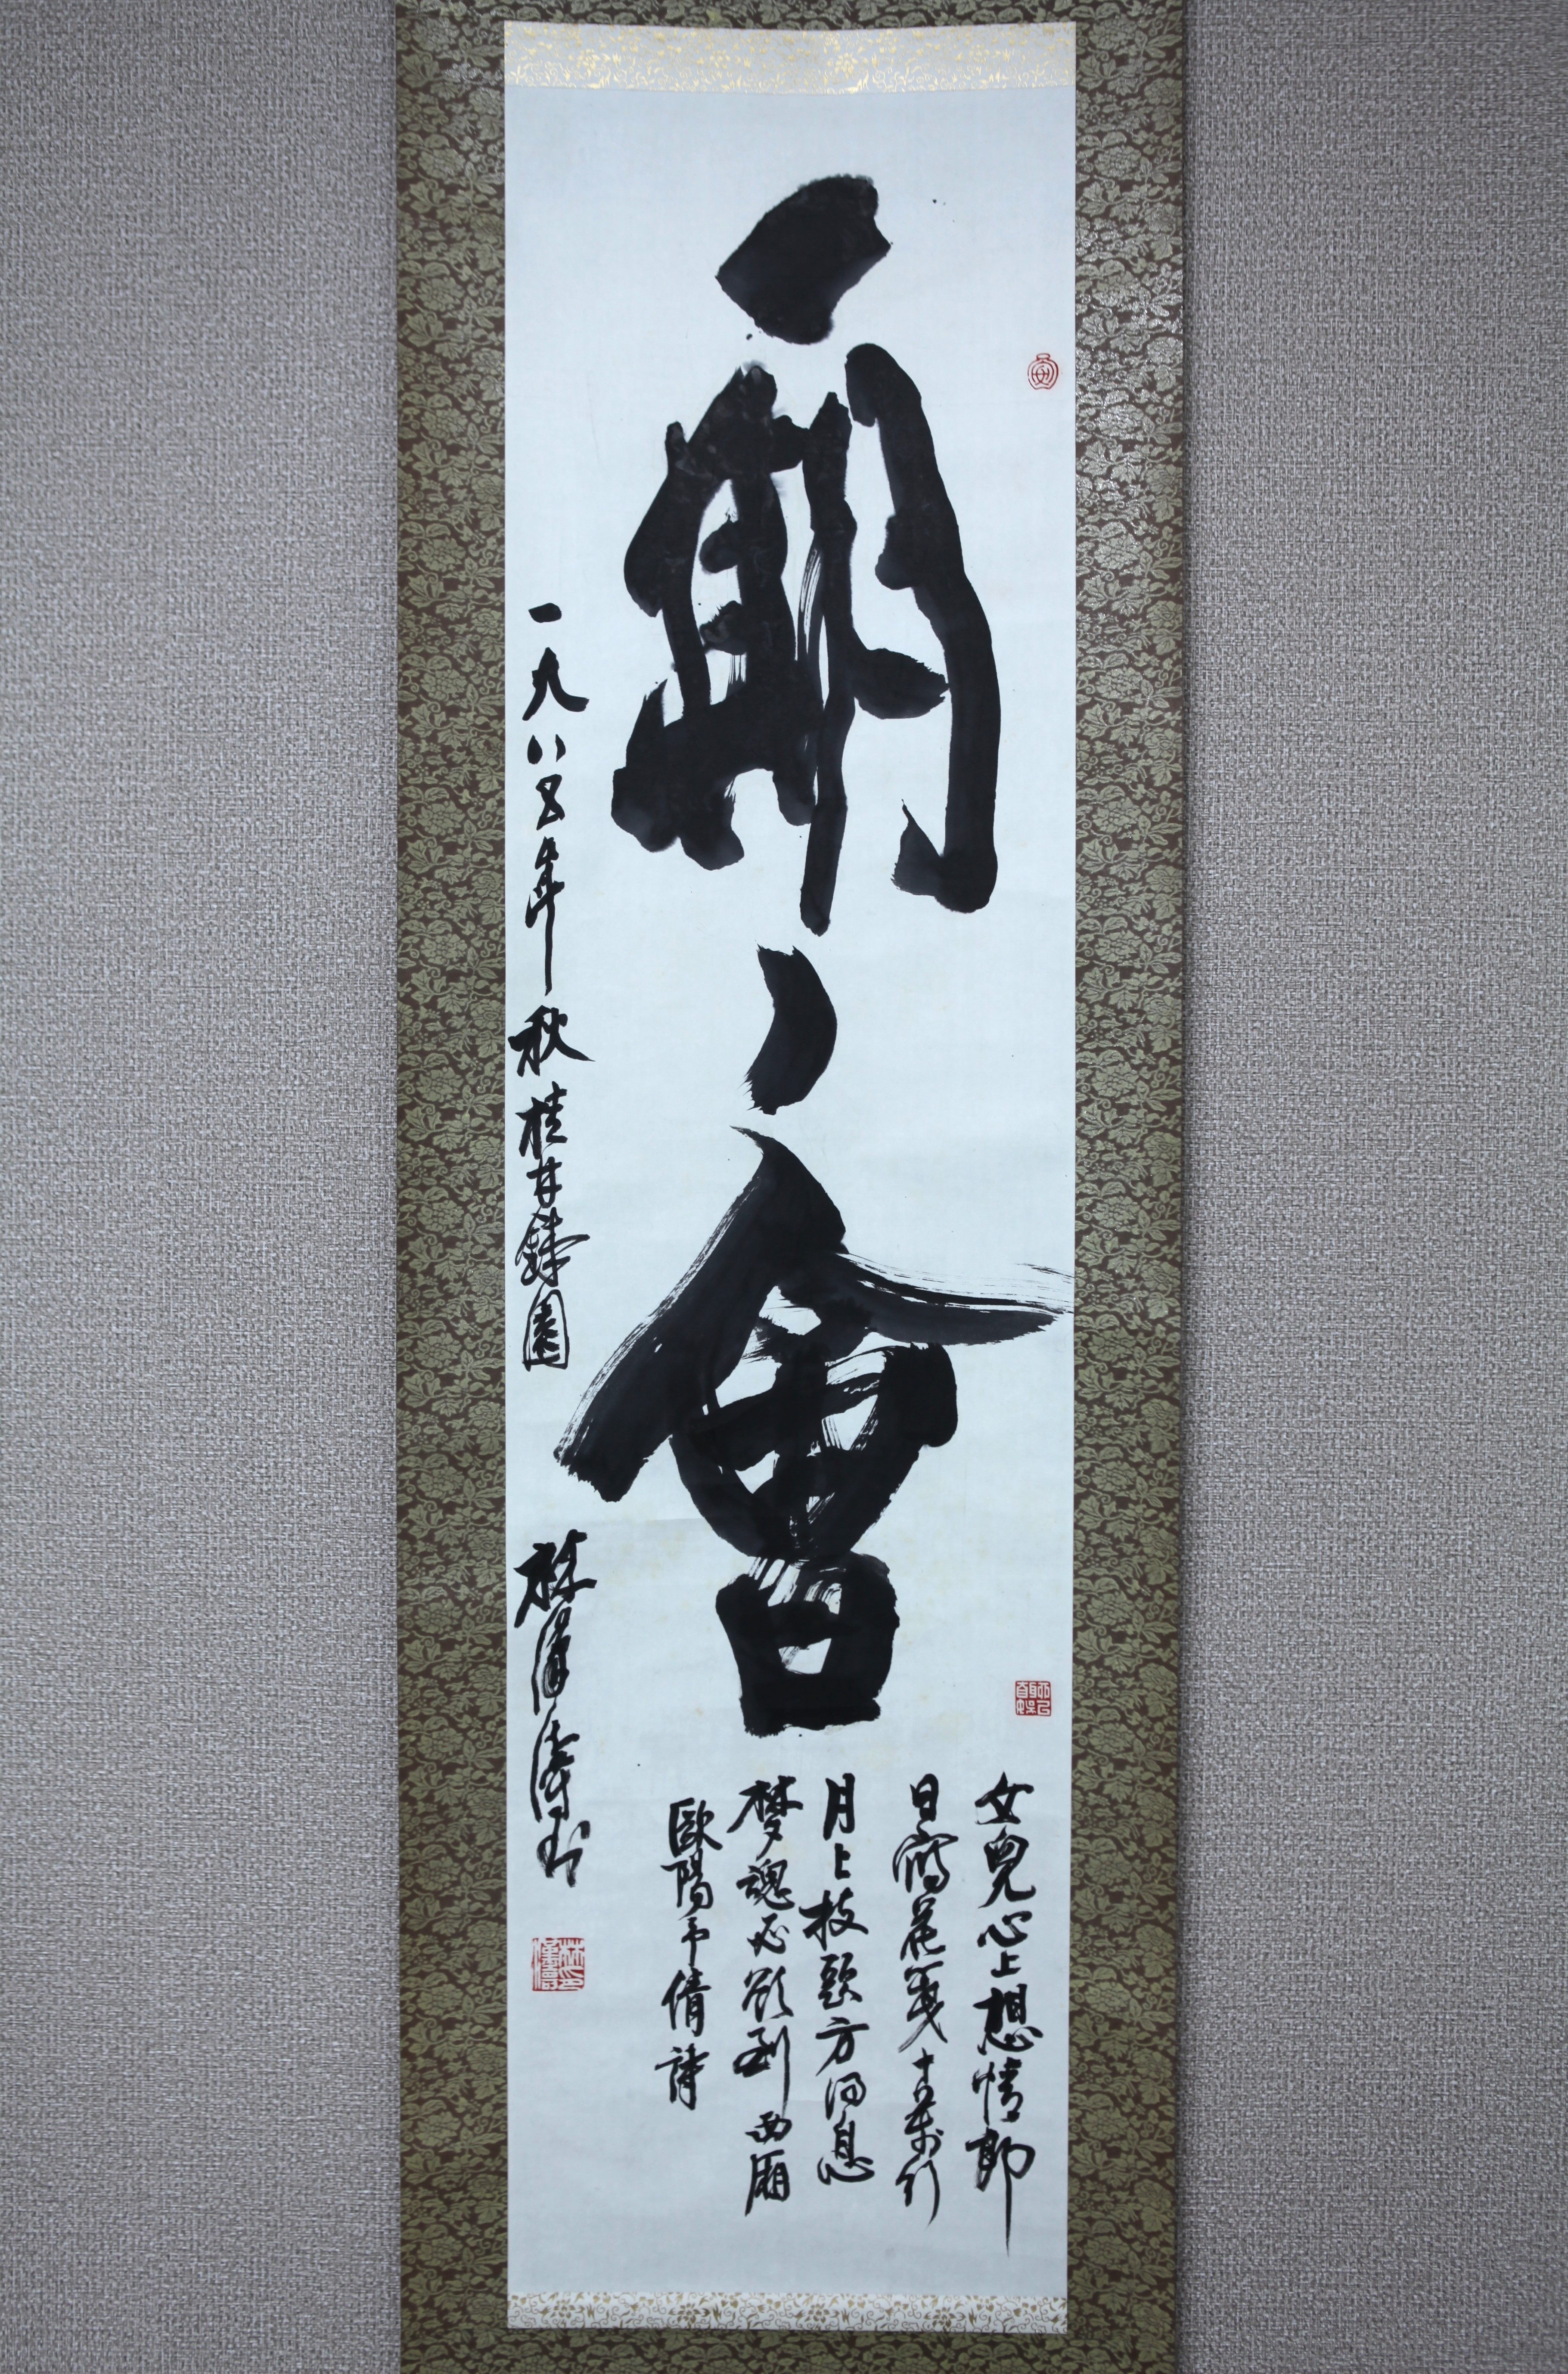 期會
女兒心上想情郎
日寫花箋十萬行
月上枝頭方得息
夢魂必欲到西廂
歐陽予倩詩
一九八五年秋桂井錄園
林漢濤書